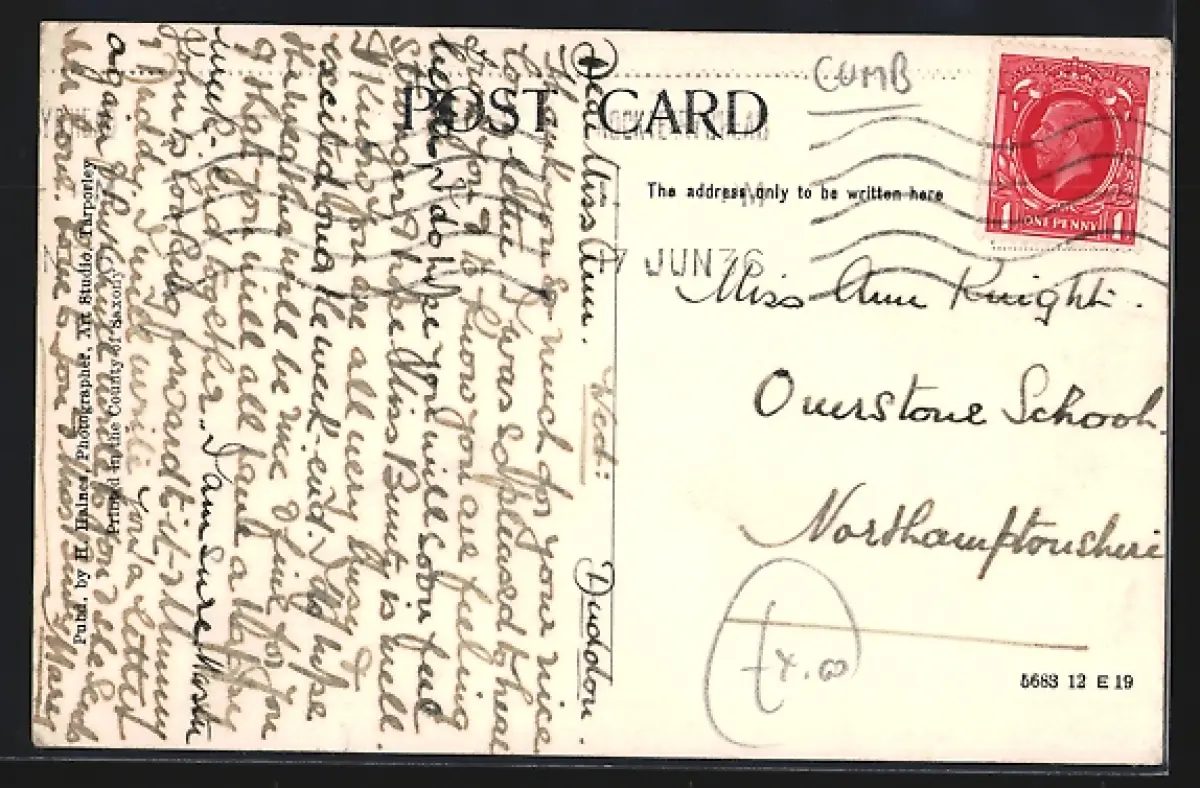 POST CARD
CUMB
The address only to be written here
7 JUN 36
ONE PENNY
1 1
Miss Ann Knight.
Overstone School.
Northamptonshire
£4.00
5683 12 E 19
Duddon.
Wed:
Dear Miss Ann.
Thank you so much for your nice
long letter. I was so pleased to hear
from you & to know you are feeling
I do hope you will soon feel
stronger & hope Miss Bunty is well.
I know you are all very busy &
excited over the week-end. I do hope
the weather will be nice & fine for you
& that you will all have a happy
week-end together. I am sure Master
John is looking forward to it & Mummy
& Daddy, I will write you a letter
again
love to you & Miss Bunty Mary
Pubd. by H. Haines, Photographer, Art Studio, Tarporley
Printed in the County of Saxony